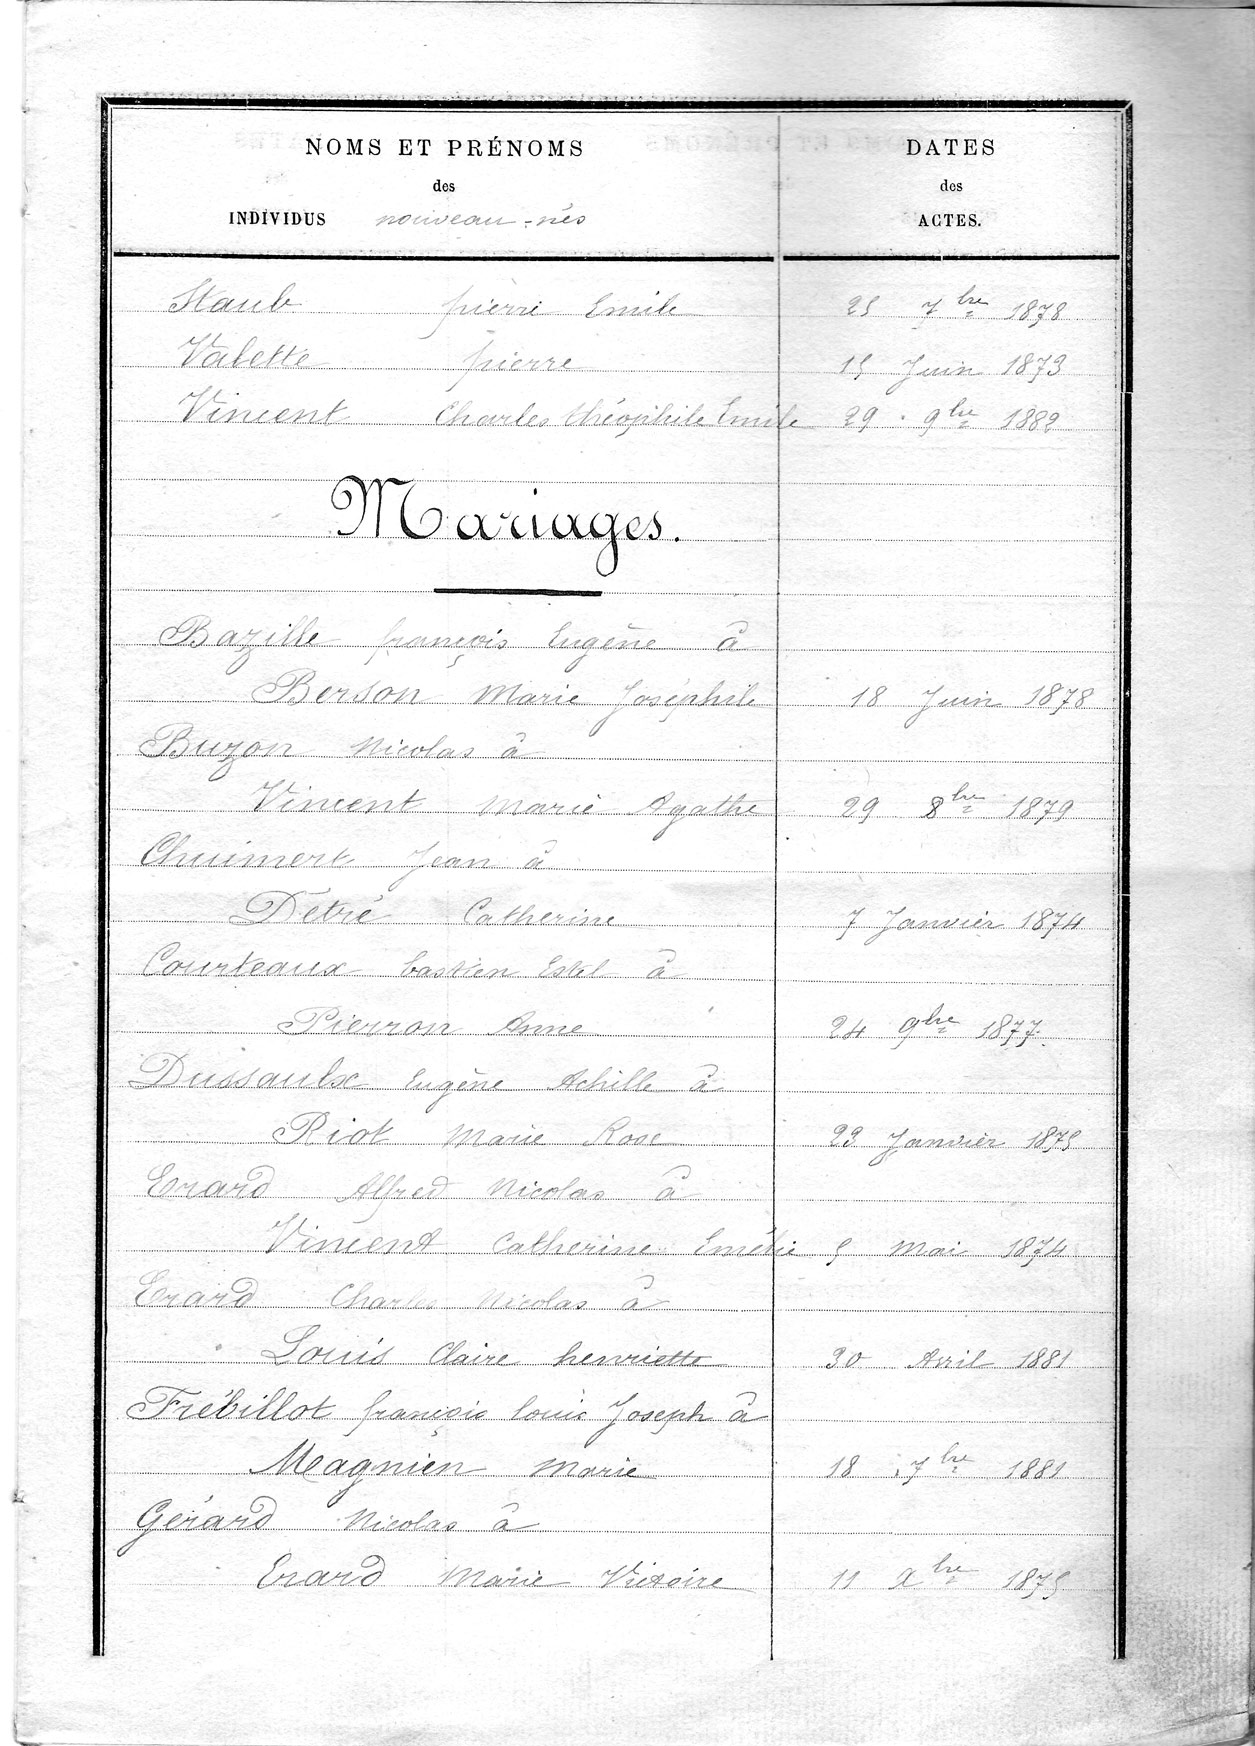 NOMS ET PRÉNOMS
des
INDIVIDUS nouveau-nés
DATES
des
ACTES.
Staub pierre Emile 25 7bre 1878
Valette pierre 15 Juin 1873
Vincent Charles théophile Emile 29 9bre 1882
Mariages.
Bazille françois Eugène à
Berson Marie Joséphile 18 Juin 1878
Buzon Nicolas à
Vincent Marie Agathe 29 8bre 1879
Chuimert Jean à
Détré Catherine 7 Janvier 1874
Courteaux bastien Estel à
Pierron Anne 24 9bre 1877
Dussaulx Eugène Achille à
Riot Marie Rose 23 Janvier 1875
Erard Alfred Nicolas à
Vincent Catherine Emélie 5 Mai 1874
Erard Charles Nicolas à
Louis Claire henriette 30 Avril 1881
Frébillot françois louis Joseph à
Magnien Marie 18 7bre 1881
Gérard Nicolas à
Erard Marie Victoire 11 Xbre 1875